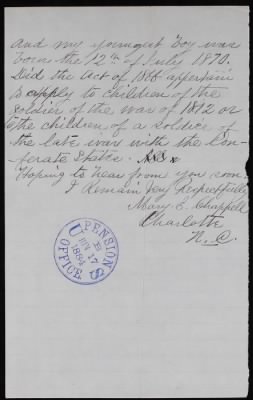 and my youngest boy was
born the 12th of July 1870.
Did the act of 1866 appertain
to apply to children of the
soldier of the war of 1812 or
to the children of a soldier of
the late war with the Con-
ferate States.
Hoping to hear from you soon.
I Remain Very Respectfully
Mary E. Chappell
Charlotte
N. C.
U S PENSION OFFICE
17
1884